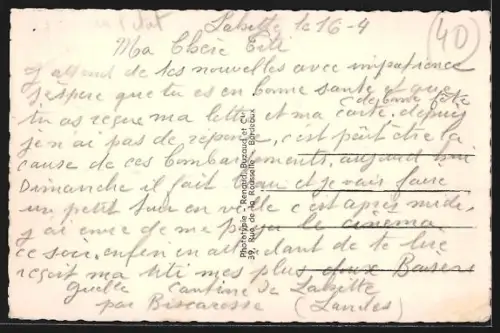 Labitte le 16-4
(40)
Ma Chère Titi
j'attend de tes nouvelles avec impatience
j'espère que tu es en bonne santé et que
tu as reçue ma lettre et ma carte depuis
de bonne fête
je n'ai pas de réponse, c'est pêut être la
cause de ces bombardements, aujourd'hui
Dimanche il fait beau et je vais faire
un petit tour en ville c'est après midi,
j'ai envie de me payer le cinéma
ce soir, enfin en attendant de te lire
reçoit ma titi mes plus doux Baisers
Cantine de Labitte
par Biscarosse (Landes)
Phototypie - Renaud, Buzaud et Cie
39, Rue de la Rousselle - Bordeaux